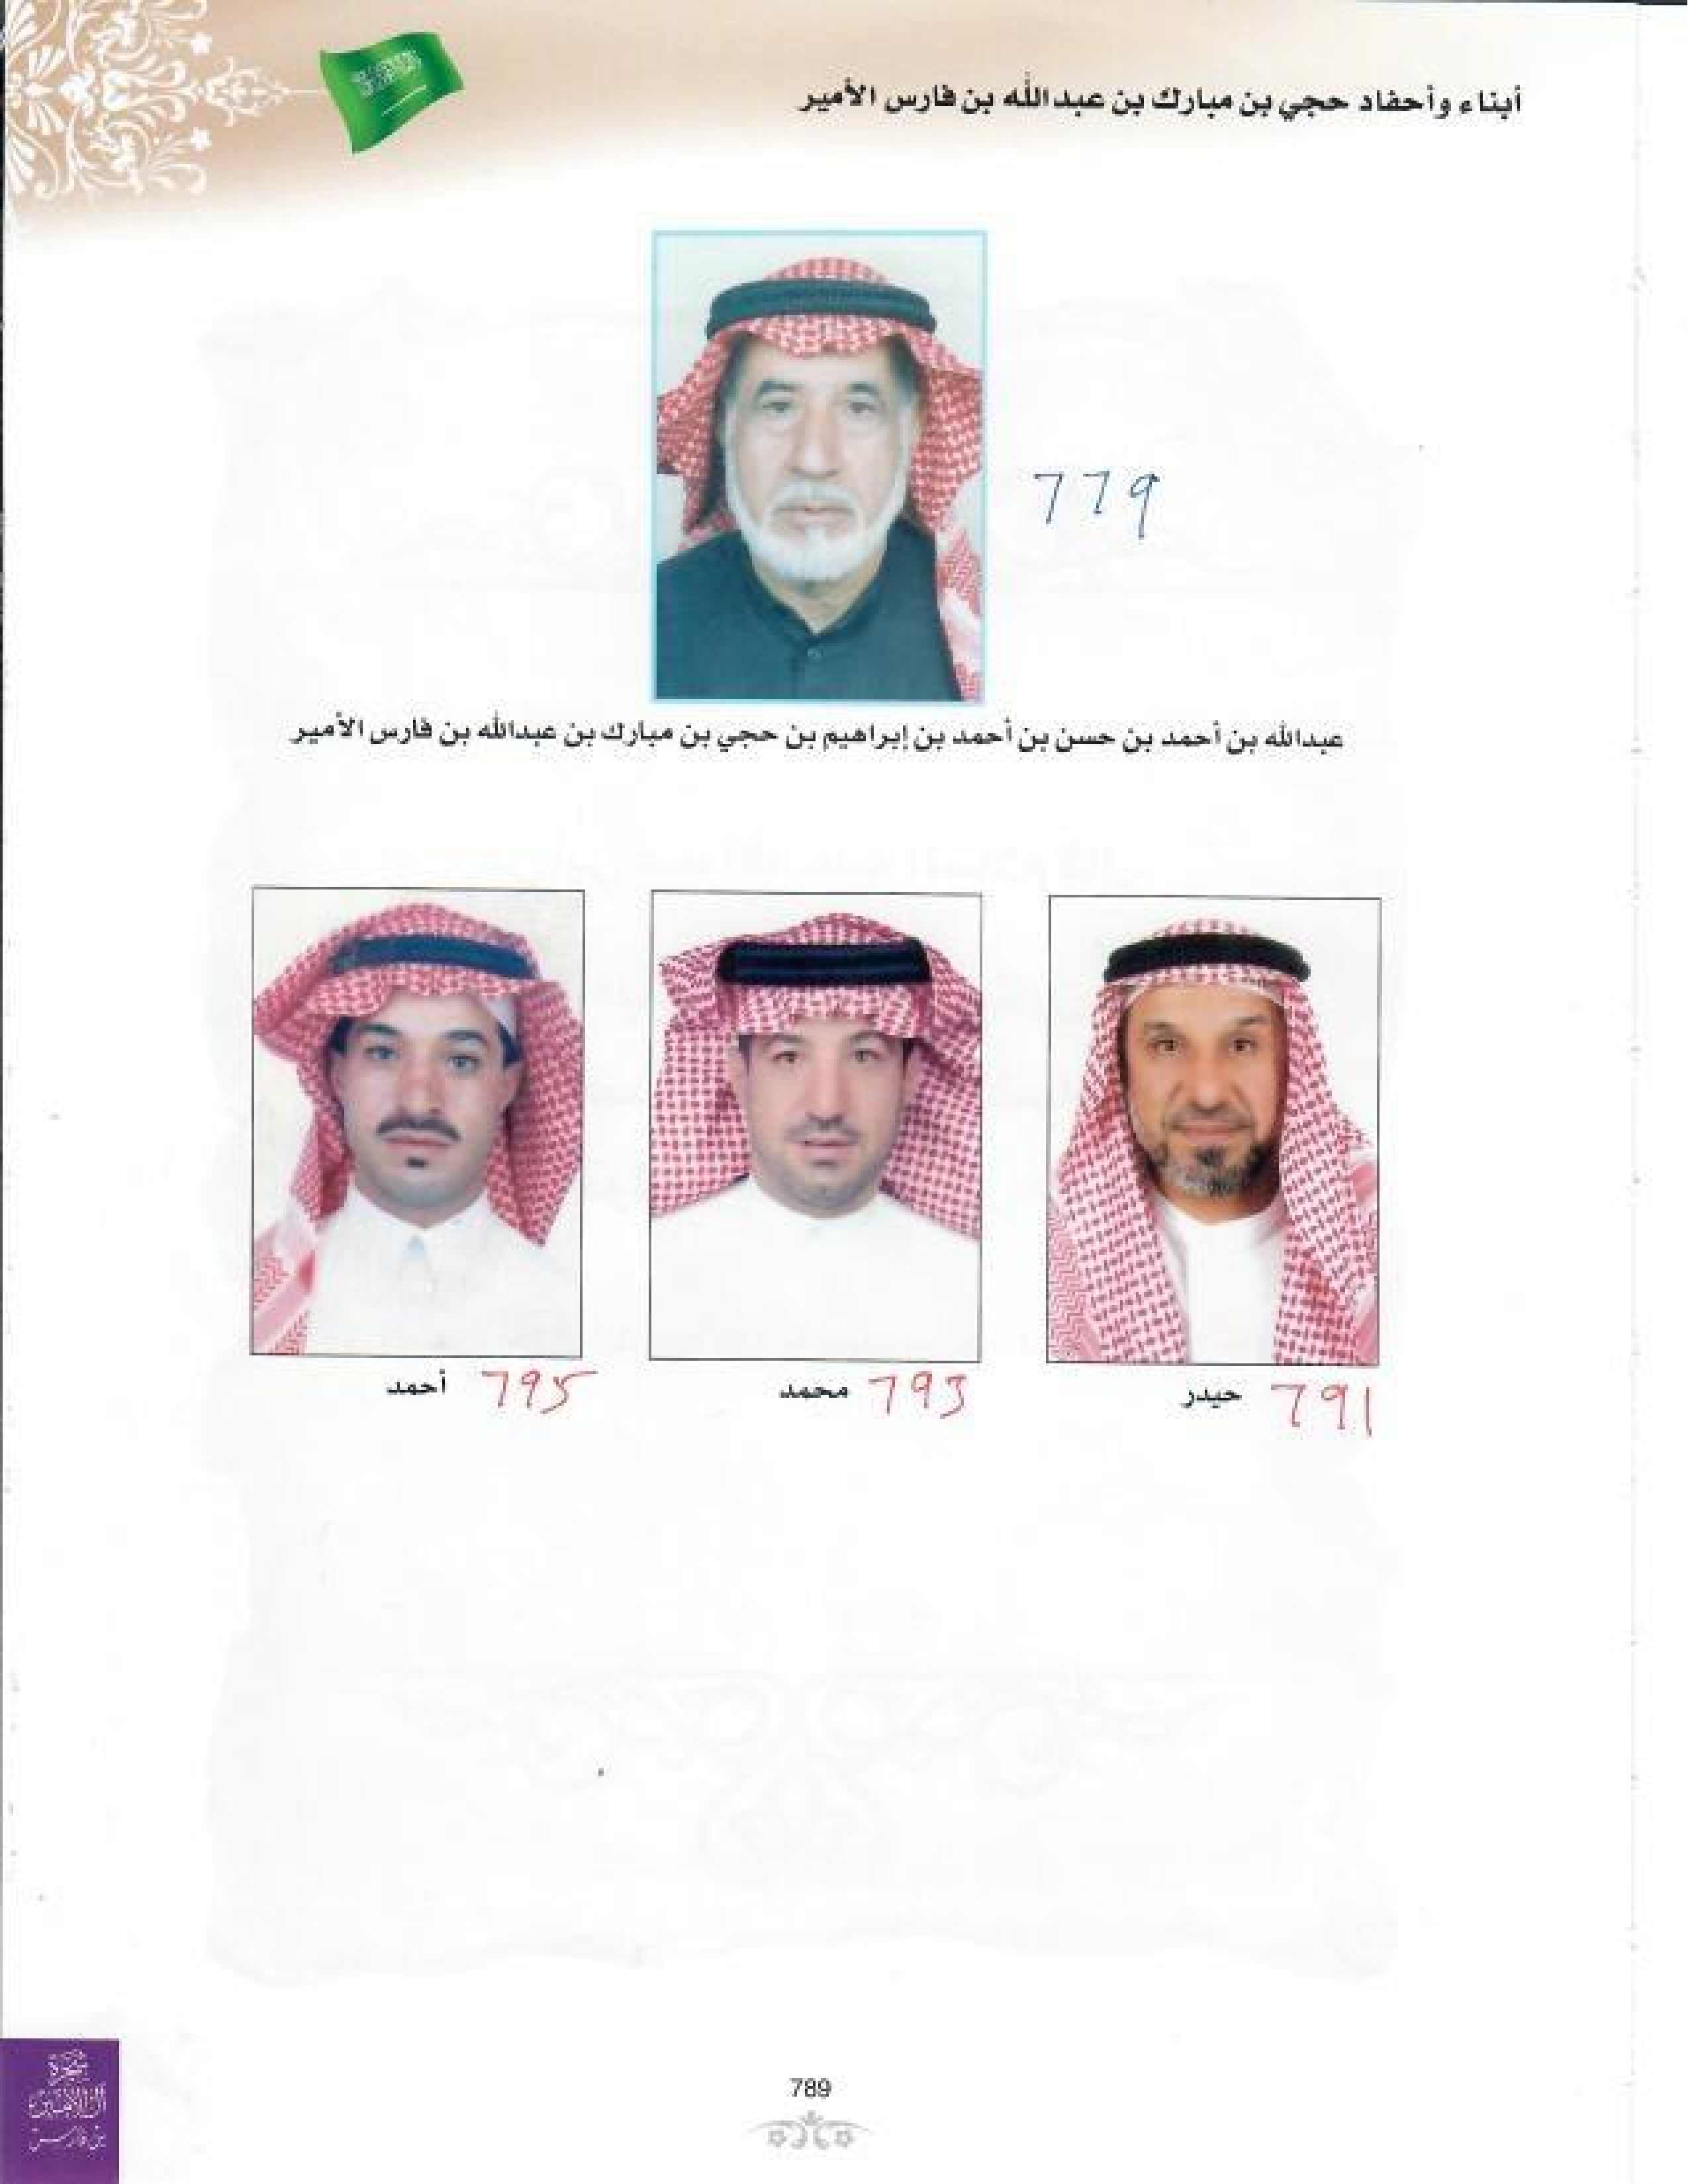 أبناء وأحفاد حجي بن مبارك بن عبدالله بن فارس الأمير
779
عبدالله بن أحمد بن حسن بن أحمد بن إبراهيم بن حجي بن مبارك بن عبدالله بن فارس الأمير
حيدر 791
محمد 793
أحمد 795
شجرة
آل الأمير
بن فارس
789